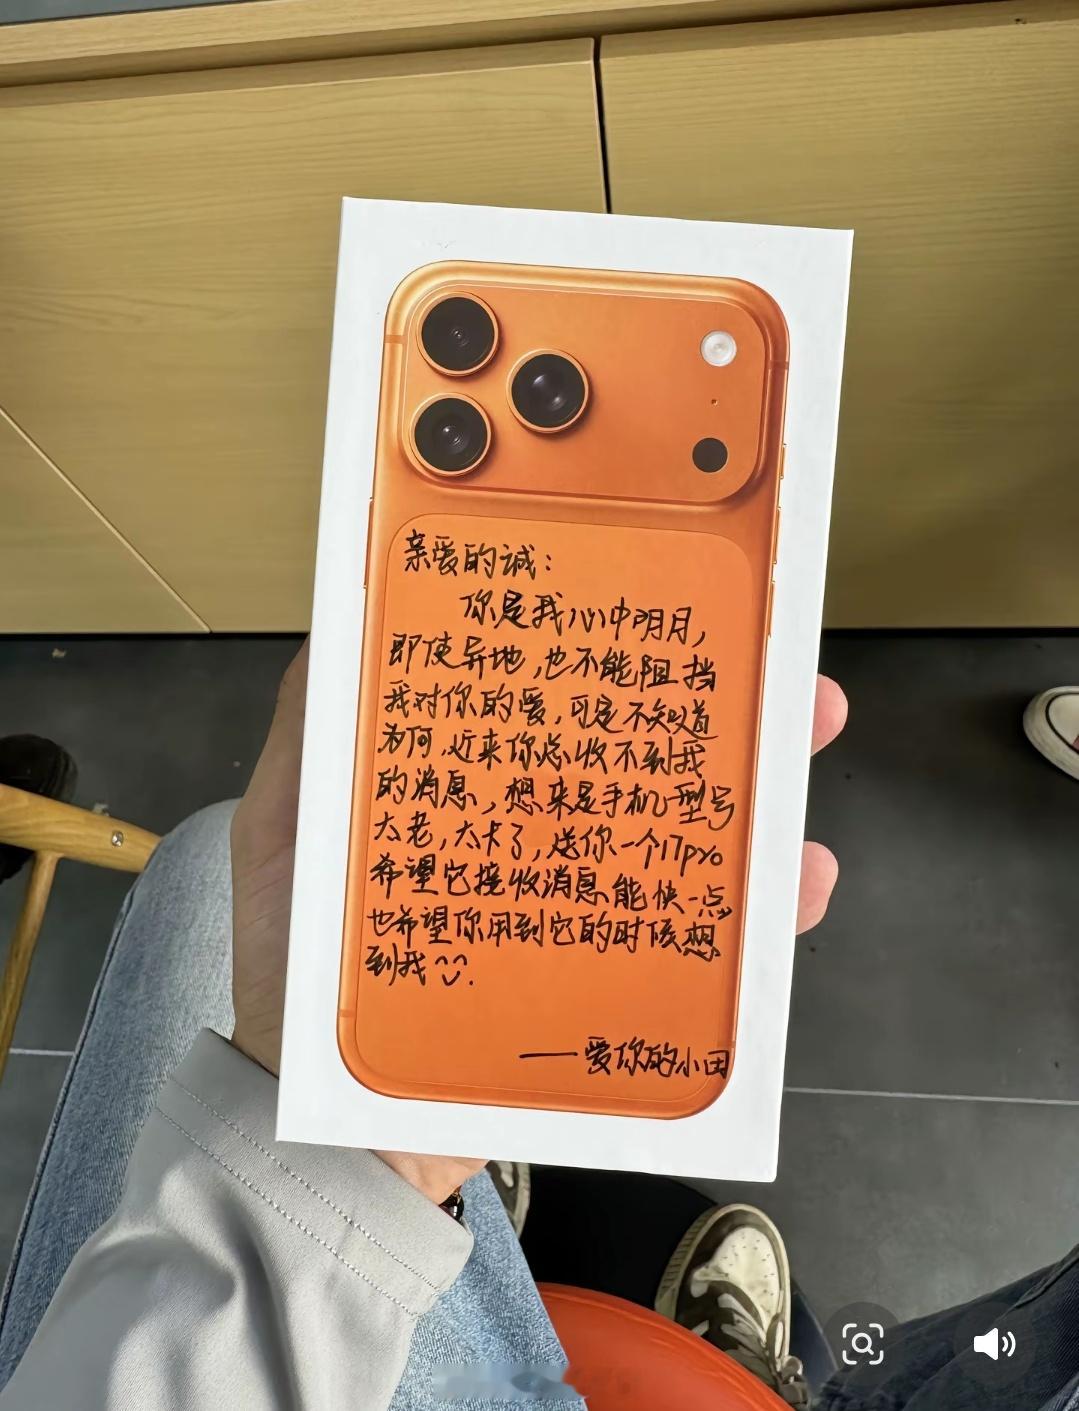 亲爱的诚：
你是我心中明月，
即使异地，也不能阻挡
我对你的爱，可是不知道
为何，近来你总收不到我
的消息，想来是手机型号
太老，太卡了，送你一个17pro
希望它接收消息能快一点，
也希望你用到它的时候想
到我^◡^.
——爱你的小田